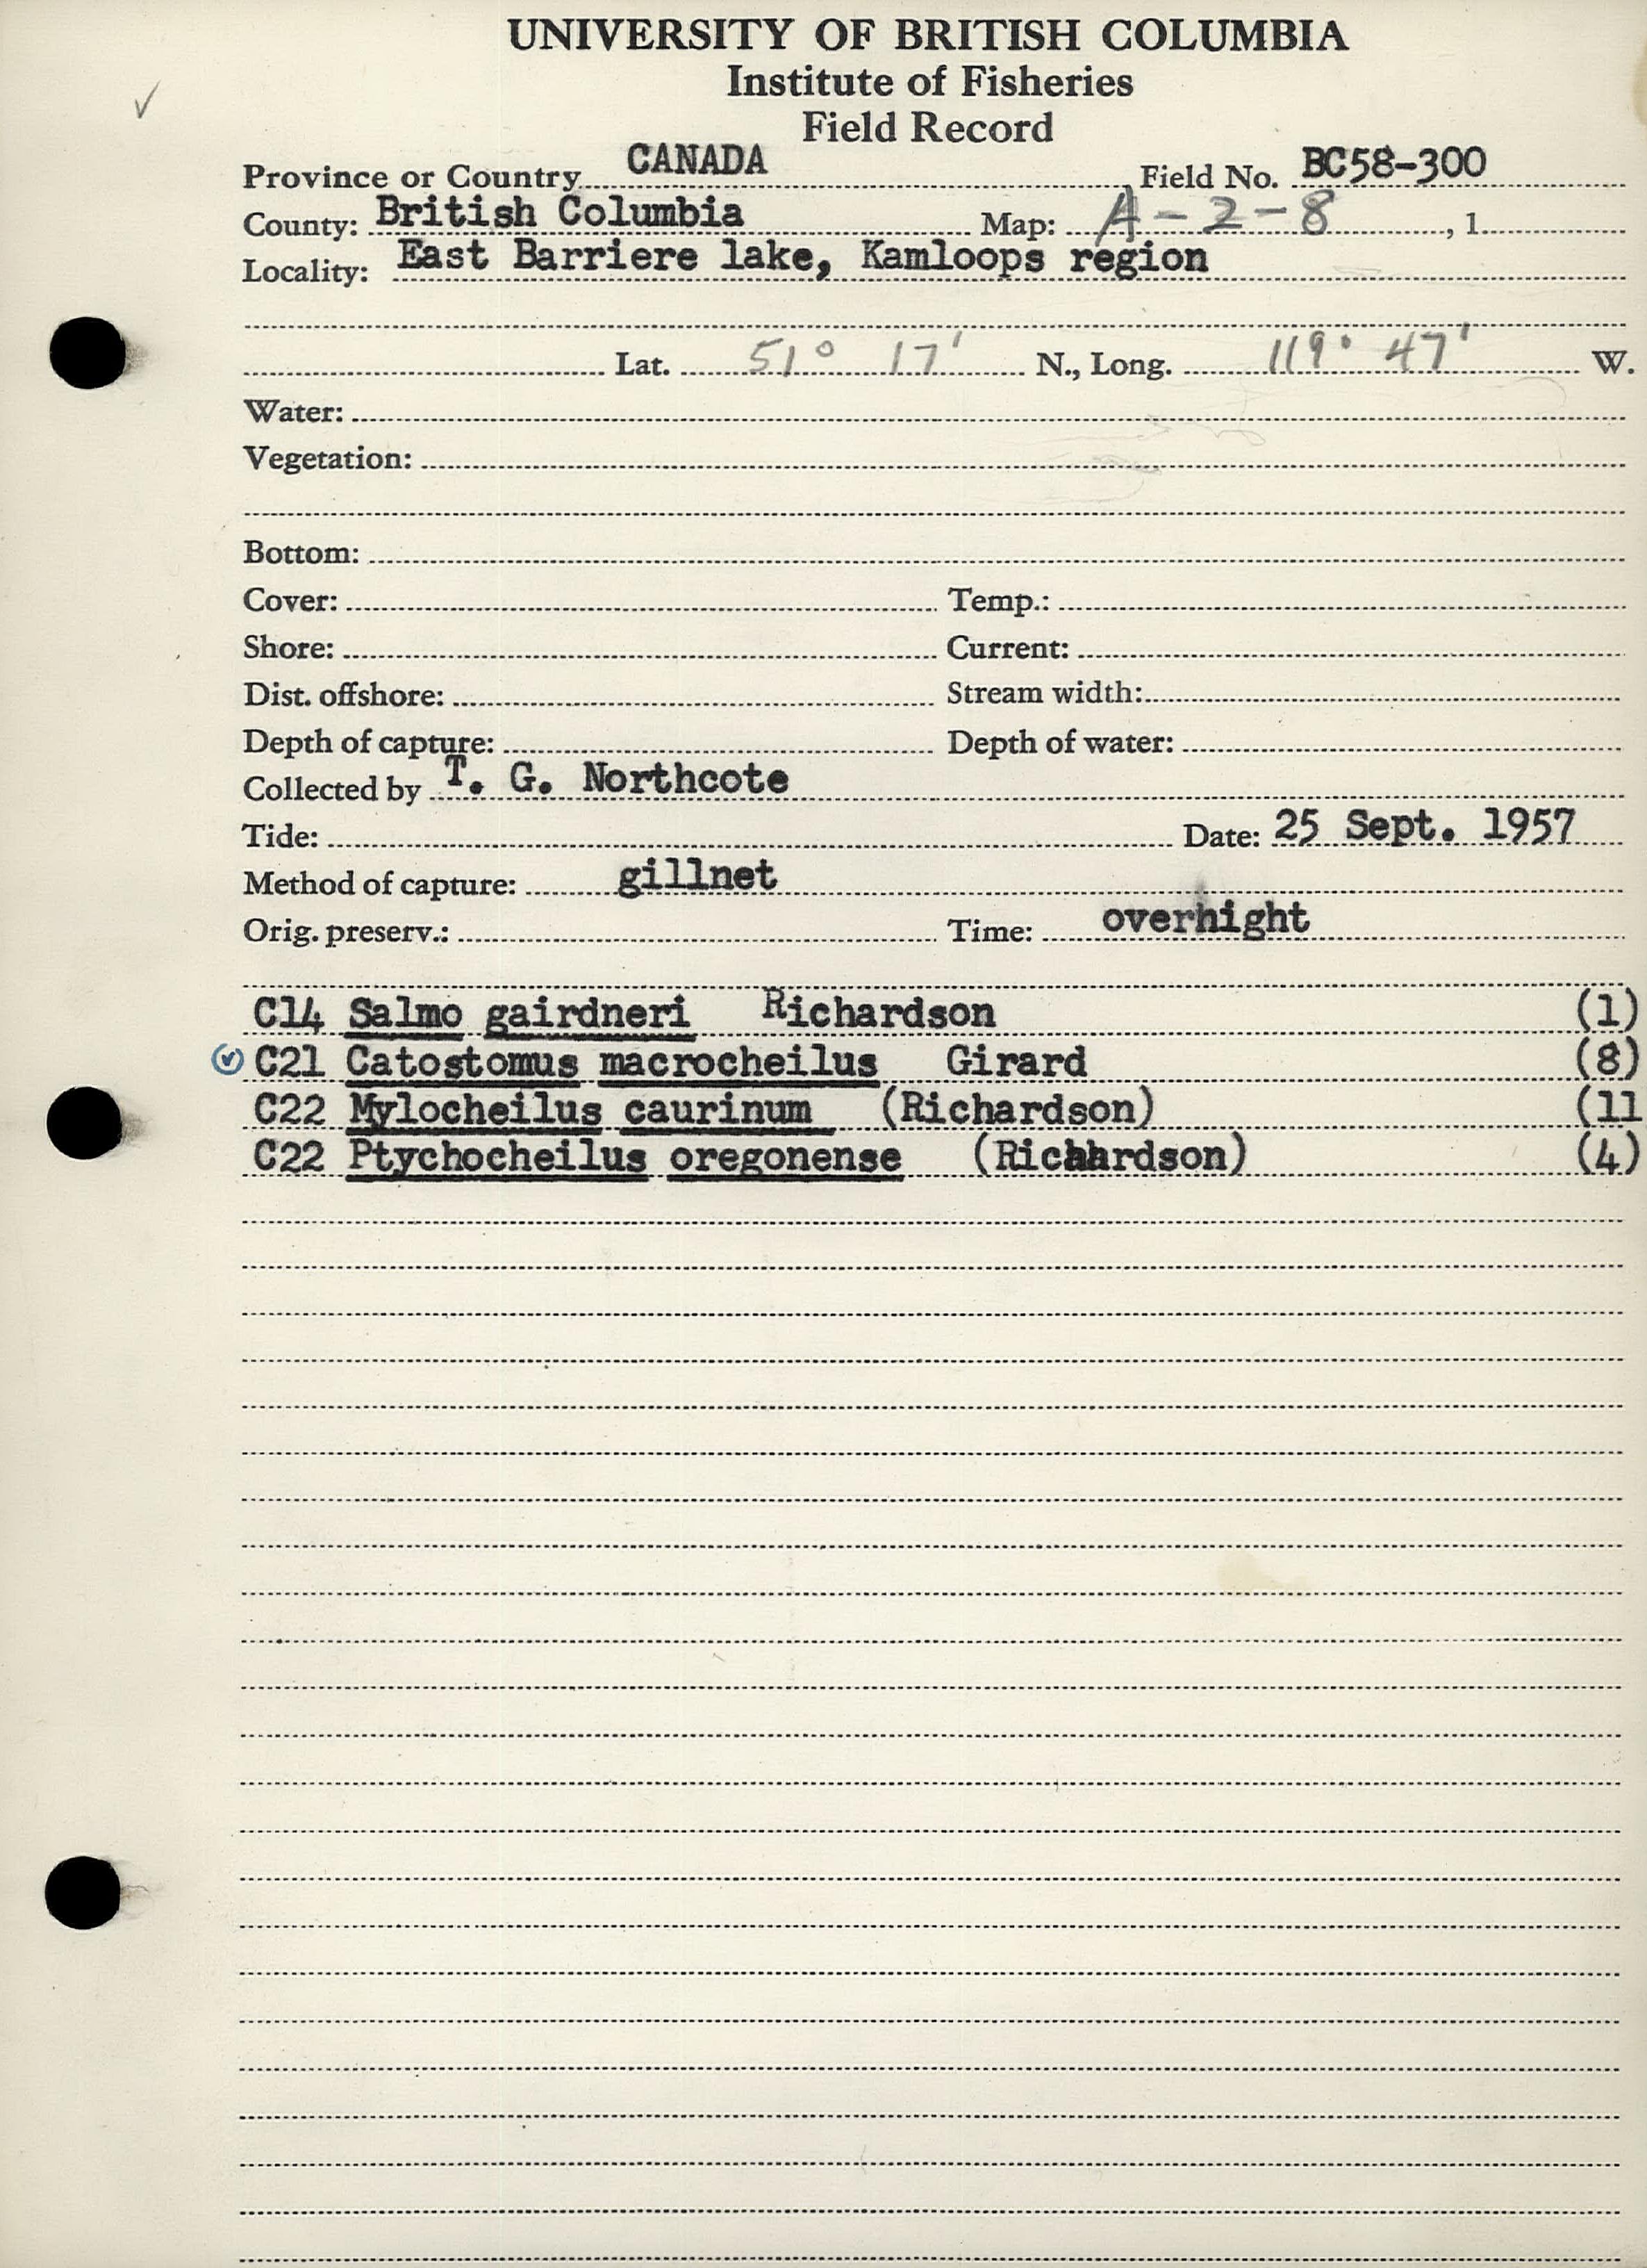 UNIVERSITY OF BRITISH COLUMBIA
Institute of Fisheries
Field Record
✓
Province or Country CANADA Field No. BC58-300
County: British Columbia Map: A-2-8, 1.
Locality: East Barriere lake, Kamloops region
Lat. 51° 17' N., Long. 119° 47' W.
Water:
Vegetation:
Bottom:
Cover: Temp.:
Shore: Current:
Dist. offshore: Stream width:
Depth of capture: Depth of water:
Collected by T. G. Northcote
Tide: Date: 25 Sept. 1957
Method of capture: gillnet
Orig. preserv.: Time: overnight
C14 Salmo gairdneri Richardson (1)
✓ C21 Catostomus macrocheilus Girard (8)
C22 Mylocheilus caurinum (Richardson) (11
C22 Ptychocheilus oregonense (Richardson) (4)